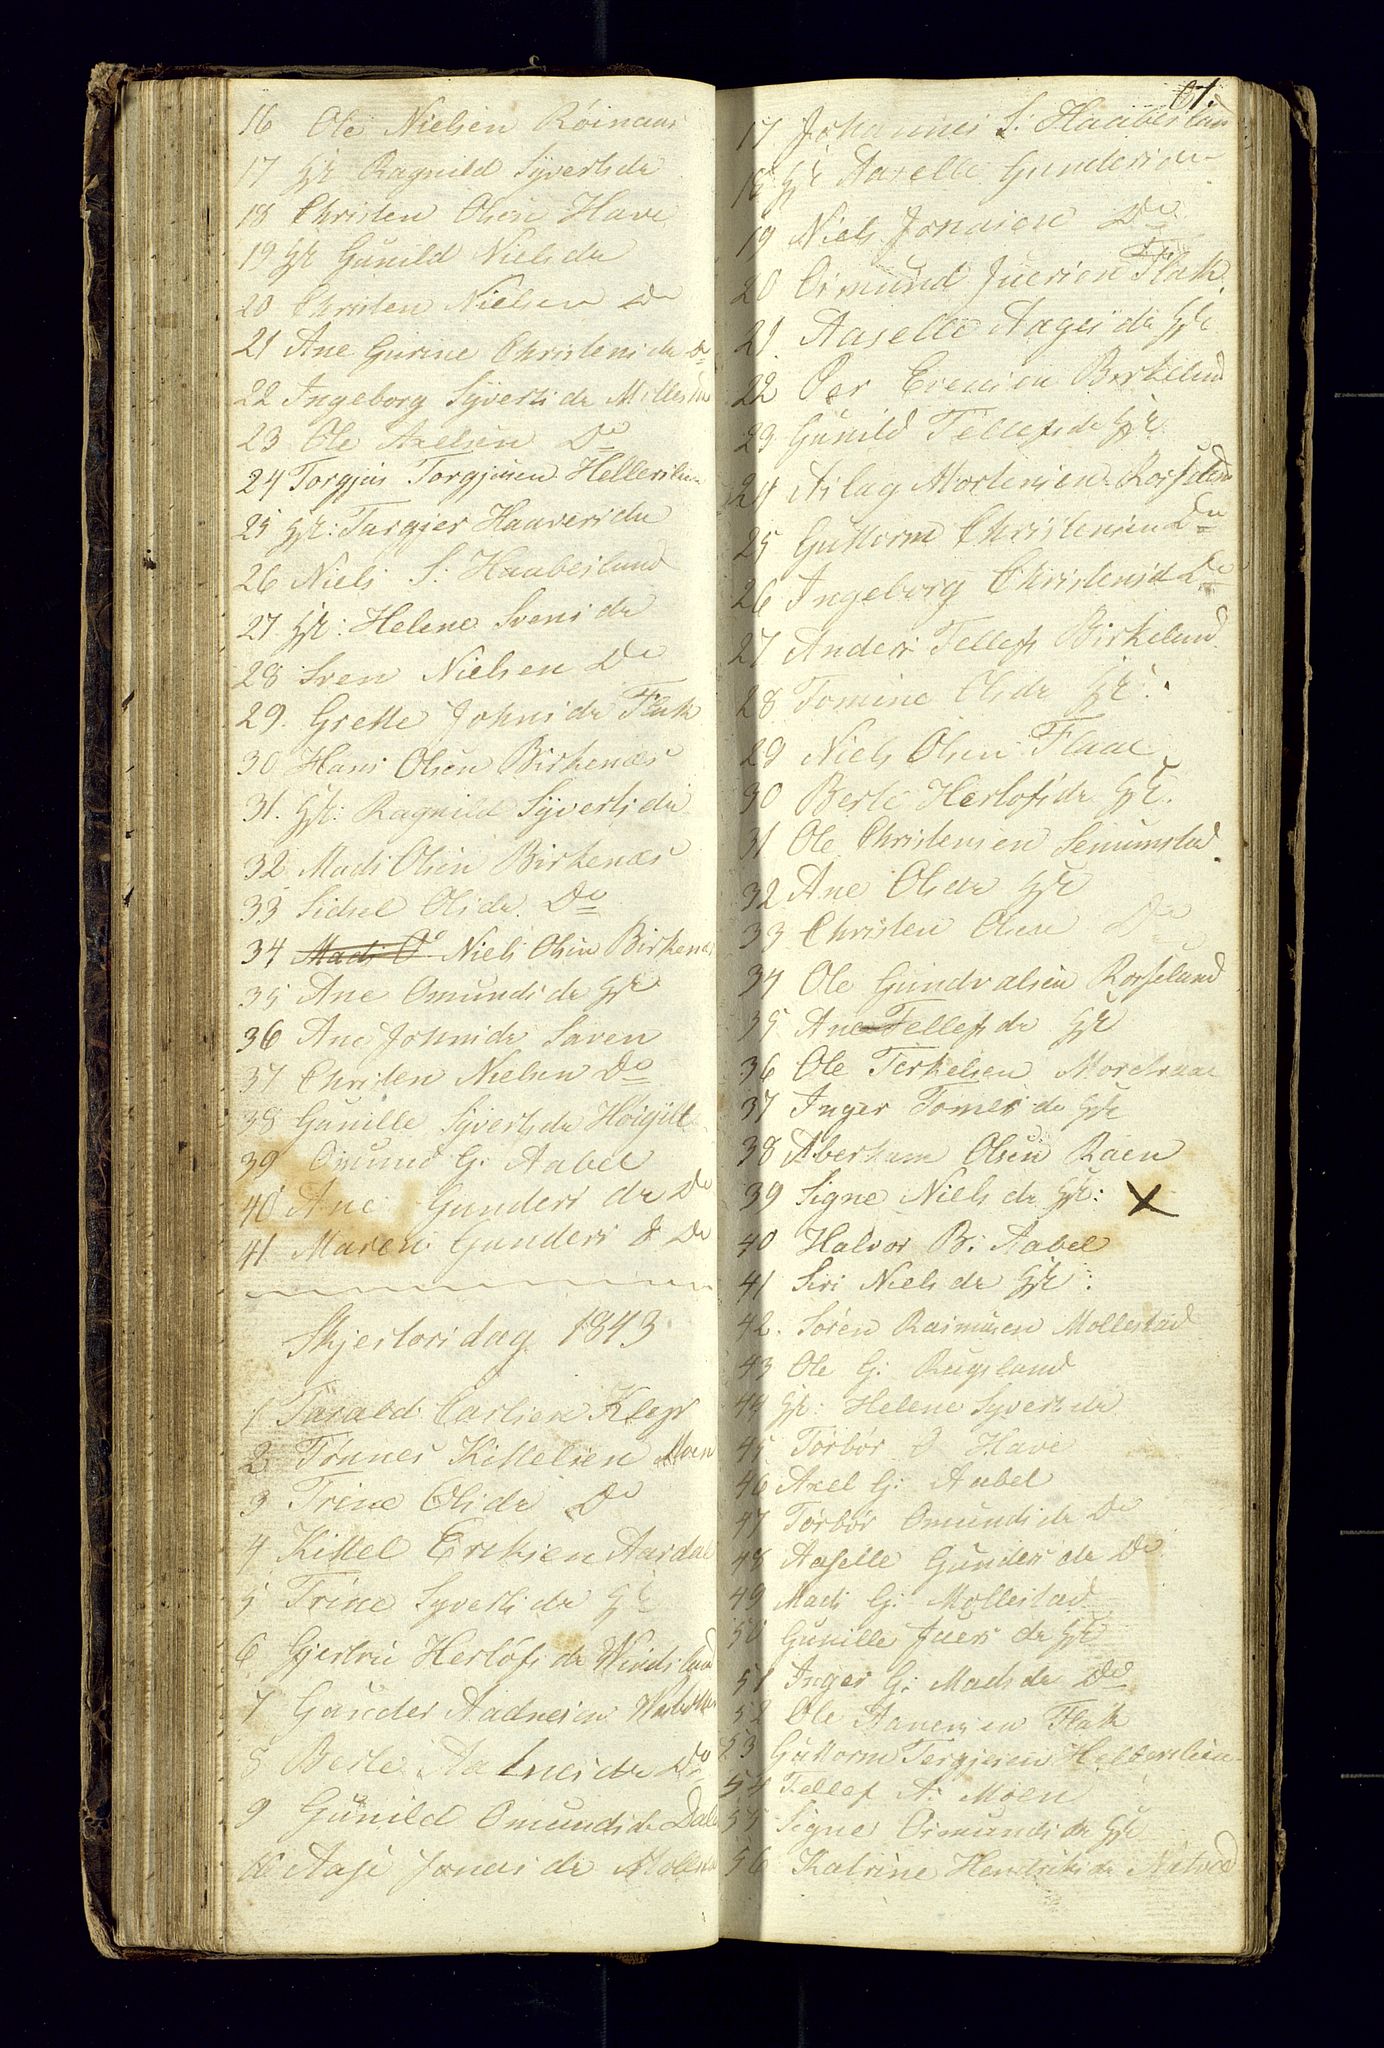 16 Ole Nielsen Røinaas
17 Hst Ragnild Syvertsdr
18 Christen Olsen Have
19 Hst Gunild Nielsdr
20 Christen Nielsen Do
21 Ane Gurine Christensdr Do
22 Ingeborg Syvertsdr Mollestad
23 Ole Axelsen Do
24 Torgjus Torgjusen Hellerslien
25 Hst: Targier Haaversdr
26 Niels S: Haabesland
27 Hst: Helene Svensdr
28 Sven Nielsen Do
29. Grette Johnsdr Flak
30 Hans Olsen Birkenæs
31. Hst: Ragnild Syvertsdr
32 Mads Olsen Birkenæs
33 Sidsel Olsdr. Do
34 Mads O Niels Olsen Birkenæs
35 Ane Omundsdr Hst
36 Ane Johnsdr Saven
37 Christen Nielsen Do
38 Gunille Syvertsdr
39 Omund G: Aabel
40 Ane Gundersdr Do
41 Maren Gunders d Do
Skjertorsdag 1843
1 Tarald Carlsen Klep
2 Tønnes Kittelsen Moen
3 Trine Olsdr Do
4 Kittel Eriksen Aardal
5 Trine Syvertsdr Hst
6 Gjertru Herlofsdr
7 Gunder Aadnesen
8 Berte Aadnesdr Do
9 Gunild Omundsdr Dale
10 Aase Jonasdr
61.
17 Johannes S: Haabesland
18 Hst Aaselle Gundersdr
19 Niels Jonasen Do
20 Osmund Juersen Flak
21. Aaselle Aagesdr Hst
22 Per Evensen Birkeland
23 Gunild Tellefsdr Hst
24 Aslag Mortensen Rosseland
25 Guttorm Christensen Do
26 Ingeborg Christensd Do
27 Anders Tellefs Birkeland
28 Tomine Olsdr Hst.
29 Niels Olsen Flaae
30 Berte Herlofsdr Hst.
31 Ole Christensen Senumstad
32 Ane Olsdr Hst
33 Christen Olsen Do
34 Ole Gundvalsen Rosseland
35 Ane Tellefsdr Hst
36 Ole Terkelsen
37 Inger Tomesdr Hst
38 Aberham Olsen Raen
39 Signe Nielsdr Hst: X
40 Halvor B: Aabel
41 Siri Nielsdr Hst:
42. Søren Rasmusen Mollestad
43 Ole G: Rugsland
44 Hst: Helene Syvertsdr
45 Torbør O Have
46 Axel G: Aabel
47 Torbør Omundsdr Do
48 Aaselle Gundersdr Do
49 Mads G: Mollestad
50 Gunille Juersdr Hst
51 Inger G: Madsdr Do
52 Ole Aanensen Flak
53 Guttorm Tergjesen Hellerslien
54 Tellef A: Moen
55 Signe Osmundsdr Hst
56 Katrine Hendriksdr